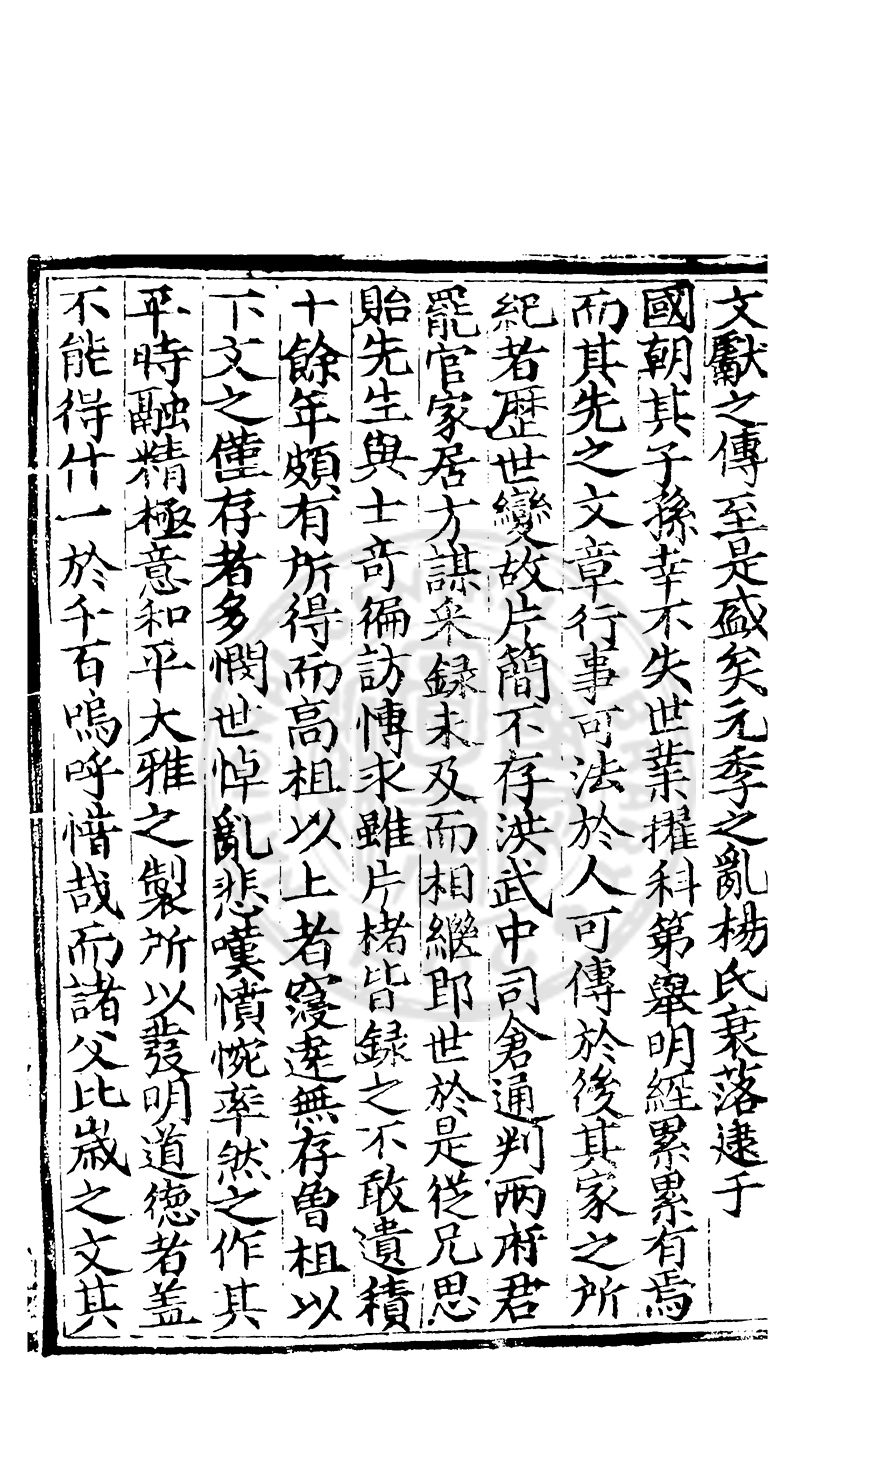 文獻之傳至是盛矣元季之亂楊氏衰落逮于
國朝其子孫幸不失世業擢科第舉明經累累有焉
而其先之文章行事可法於人可傳於後其家之所
紀者歷世變故片簡不存洪武中司倉通判兩府君
罷官家居方謀采録未及而相繼即世於是從兄思
貽先生與士竒徧訪博求雖片楮皆録之不敢遺積
十餘年頗有所得而高祖以上者寖遠無存曾祖以
下文之僅存者多憫世悼亂悲嘆憤惋率然之作其
平時融精極意和平大雅之製所以發明道德者盖
不能得什一於千百嗚呼惜哉而諸父比嵗之文其